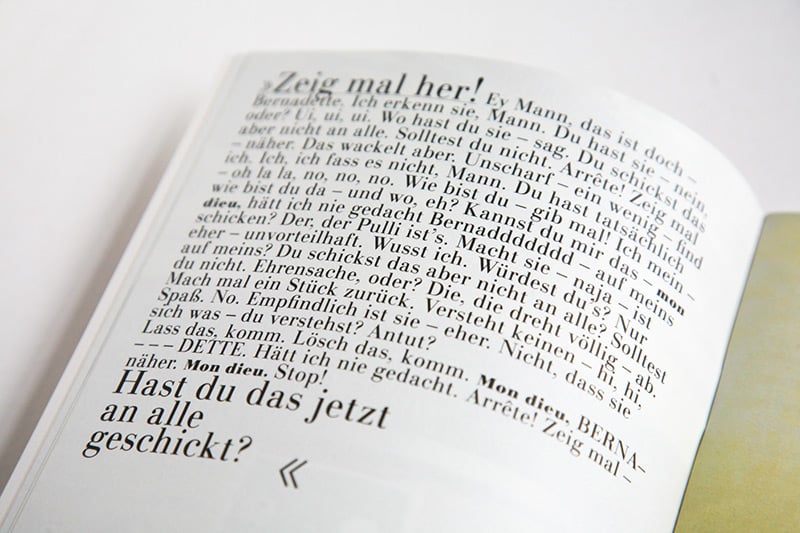 »Zeig mal her! Ey Mann, das ist doch –
Bernadette. Ich erkenn sie, Mann. Du hast sie – nein,
oder? Ui, ui, ui. Wo hast du sie – sag. Du schickst das
aber nicht an alle. Solltest du nicht. Arrête! Zeig mal
– näher. Das wackelt aber. Unscharf – ein wenig – find
ich. Ich, ich fass es nicht, Mann. Du hast tatsächlich
– oh la la, no, no, no. Wie bist du – gib mal! Ich mein –
wie bist du da – und wo, eh? Kannst du mir das – mon
dieu, hätt ich nie gedacht Bernaddddddd – auf meins
schicken? Der, der Pulli ist's. Macht sie – naja – ist
eher – unvorteilhaft. Wusst ich. Würdest du's? Nur
auf meins? Du schickst das aber nicht an alle? Solltest
du nicht. Ehrensache, oder? Die, die dreht völlig – ab.
Mach mal ein Stück zurück. Versteht keinen – hi, hi,
Spaß. No. Empfindlich ist sie – eher. Nicht, dass sie
sich was – du verstehst? Antut?
Lass das, komm. Lösch das, komm. Mon dieu, BERNA–
– – – DETTE. Hätt ich nie gedacht. Arrête! Zeig mal –
näher. Mon dieu. Stop!
Hast du das jetzt
an alle
geschickt? «